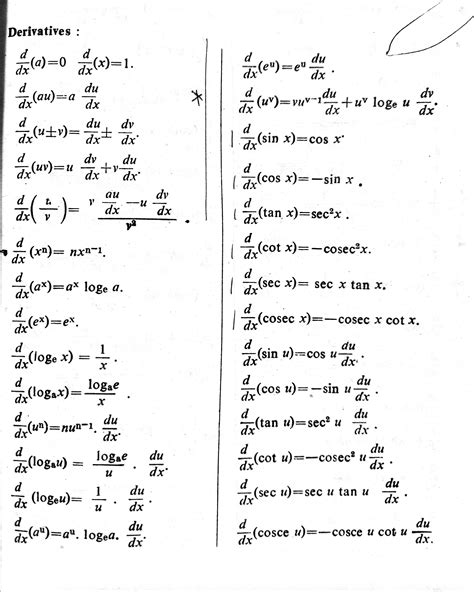 Derivatives :
d/dx(a)=0 d/dx(x)=1.
d/dx(au)=a du/dx
d/dx(u±v)=du/dx± dv/dx.
d/dx(uv)=u dv/dx+v du/dx.
d/dx(u/v)= (v au/dx —u dv/dx)/v² .
d/dx (xⁿ)= nxⁿ⁻¹.
d/dx(aˣ)=aˣ logₑ a.
d/dx(eˣ)=eˣ.
d/dx(logₑ x) = 1/x .
d/dx(logₐx)= logₐe/x .
d/dx(uⁿ)=nuⁿ⁻¹. du/dx.
d/dx(logₐu) = logₐe/u . du/dx.
d/dx (logₑu)= 1/u . du/dx.
d/dx(aᵘ)=aᵘ. logₑa. du/dx.
d/dx(eᵘ)=eᵘ du/dx .
* d/dx(uᵛ)=vuᵛ⁻¹ du/dx+uᵛ logₑ u dv/dx.
d/dx(sin x)=cos x·
d/dx(cos x)=—sin x .
d/dx(tan x)=sec²x .
d/dx(cot x)=—cosec²x.
d/dx(sec x)= sec x tan x.
d/dx(cosec x)=—cosec x cot x.
d/dx(sin u)=cos u du/dx .
d/dx(cos u)=—sin u du/dx .
d/dx(tan u)=sec² u du/dx .
d/dx(cot u)=—cosec² u du/dx .
d/dx(sec u)=sec u tan u du/dx .
d/dx(cosce u)=—cosce u cot u du/dx.